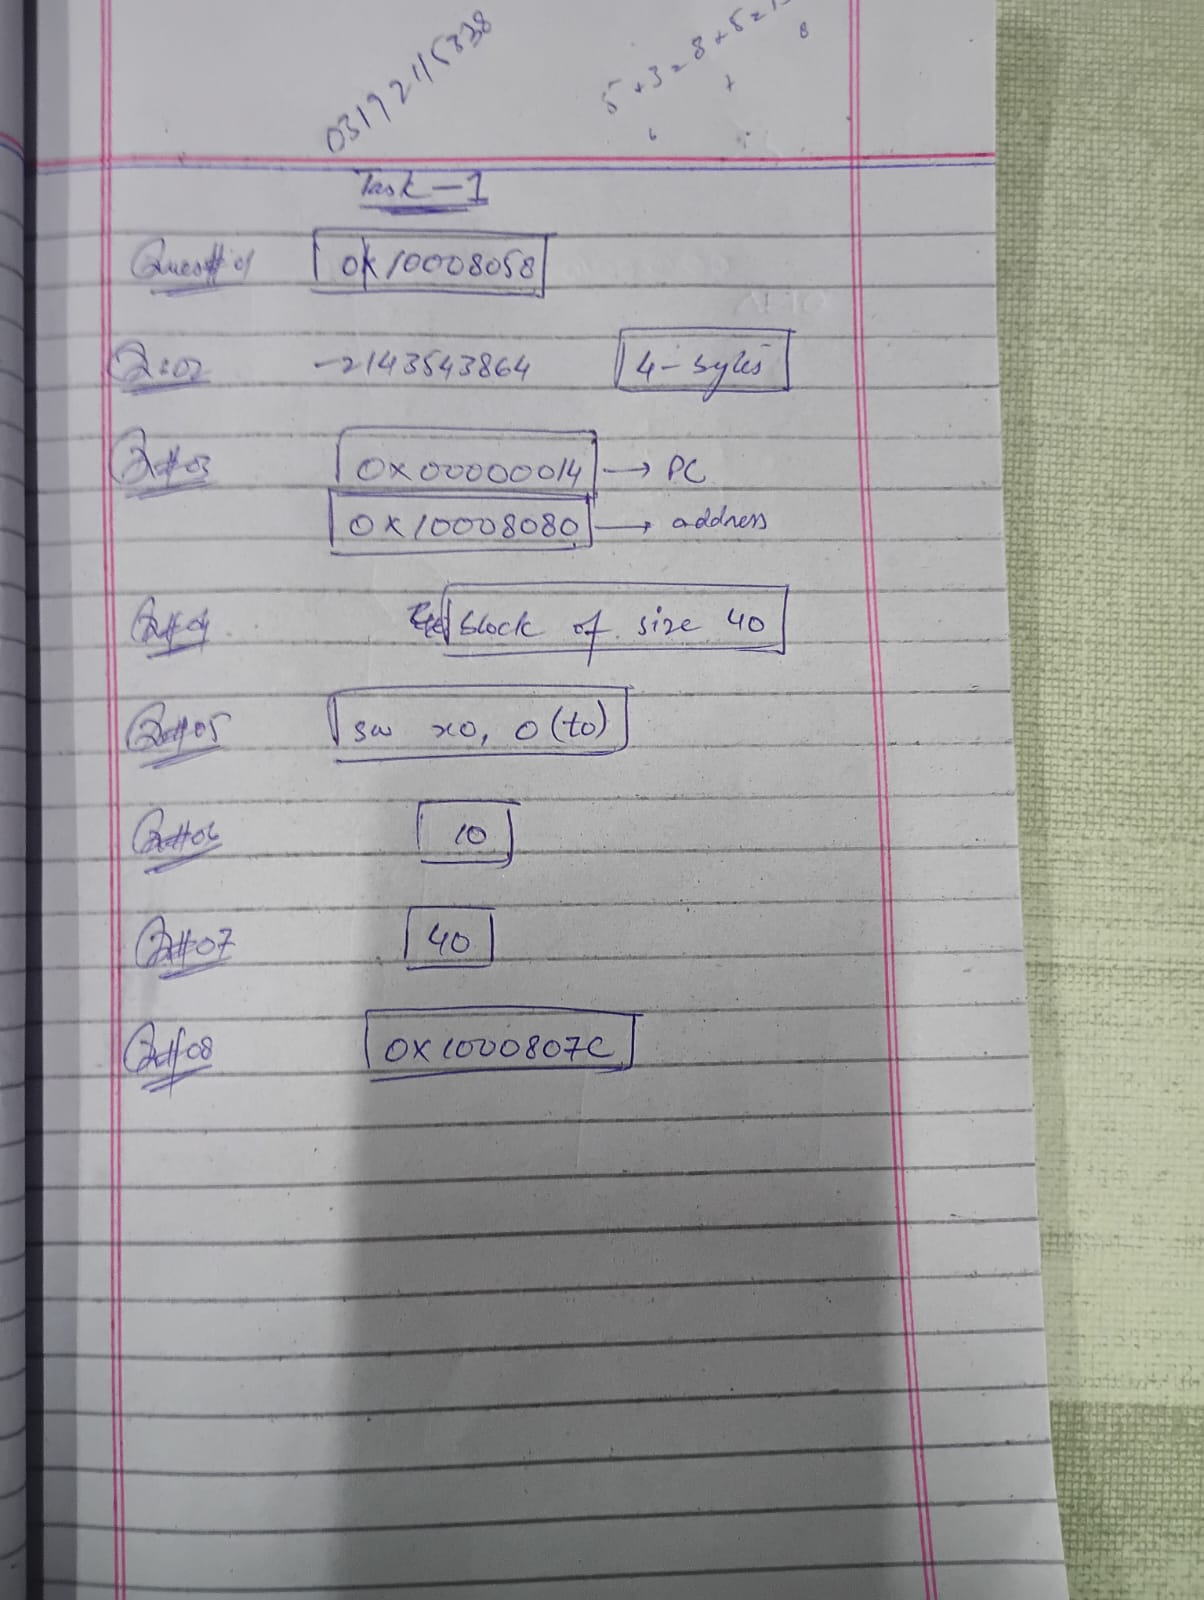 5+3=8+5=1
8
Task-1
Ques#01 0x10008058
Q:02 -2143543864 4-bytes
Q#03 0x00000014 → PC
0x10008080 → address
Q#04 block of size 40
Q#05 sw x0, 0(t0)
Q#06 10
Q#07 40
Q#08 0x1000807C